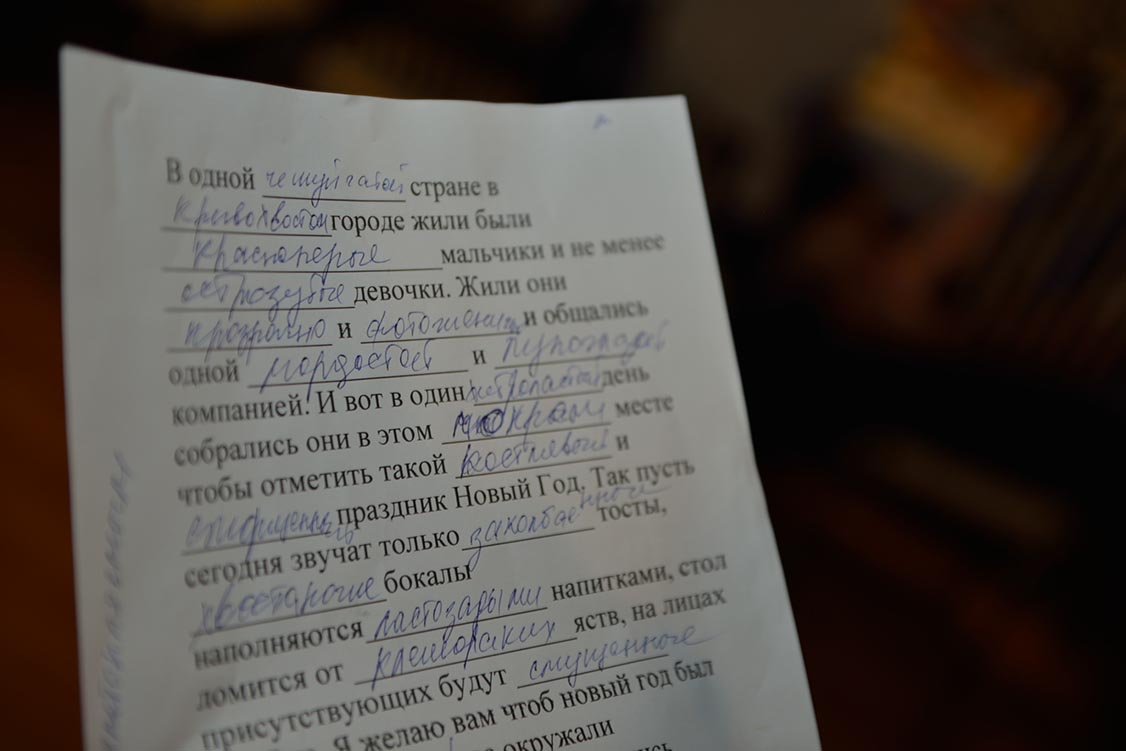 В одной чешуйчатой стране в
кривохвостом городе жили были
красноперые мальчики и не менее
острозубые девочки. Жили они
прозрачно и и общались
одной мордастой и
компанией. И вот в один день
собрались они в этом мокром месте
чтобы отметить такой костлявый и
праздник Новый Год. Так пусть
сегодня звучат только тосты,
хвосторогие бокалы
наполняются напитками, стол
ломится от яств, на лицах
присутствующих будут смущенные
Я желаю вам чтоб новый год был
окружали